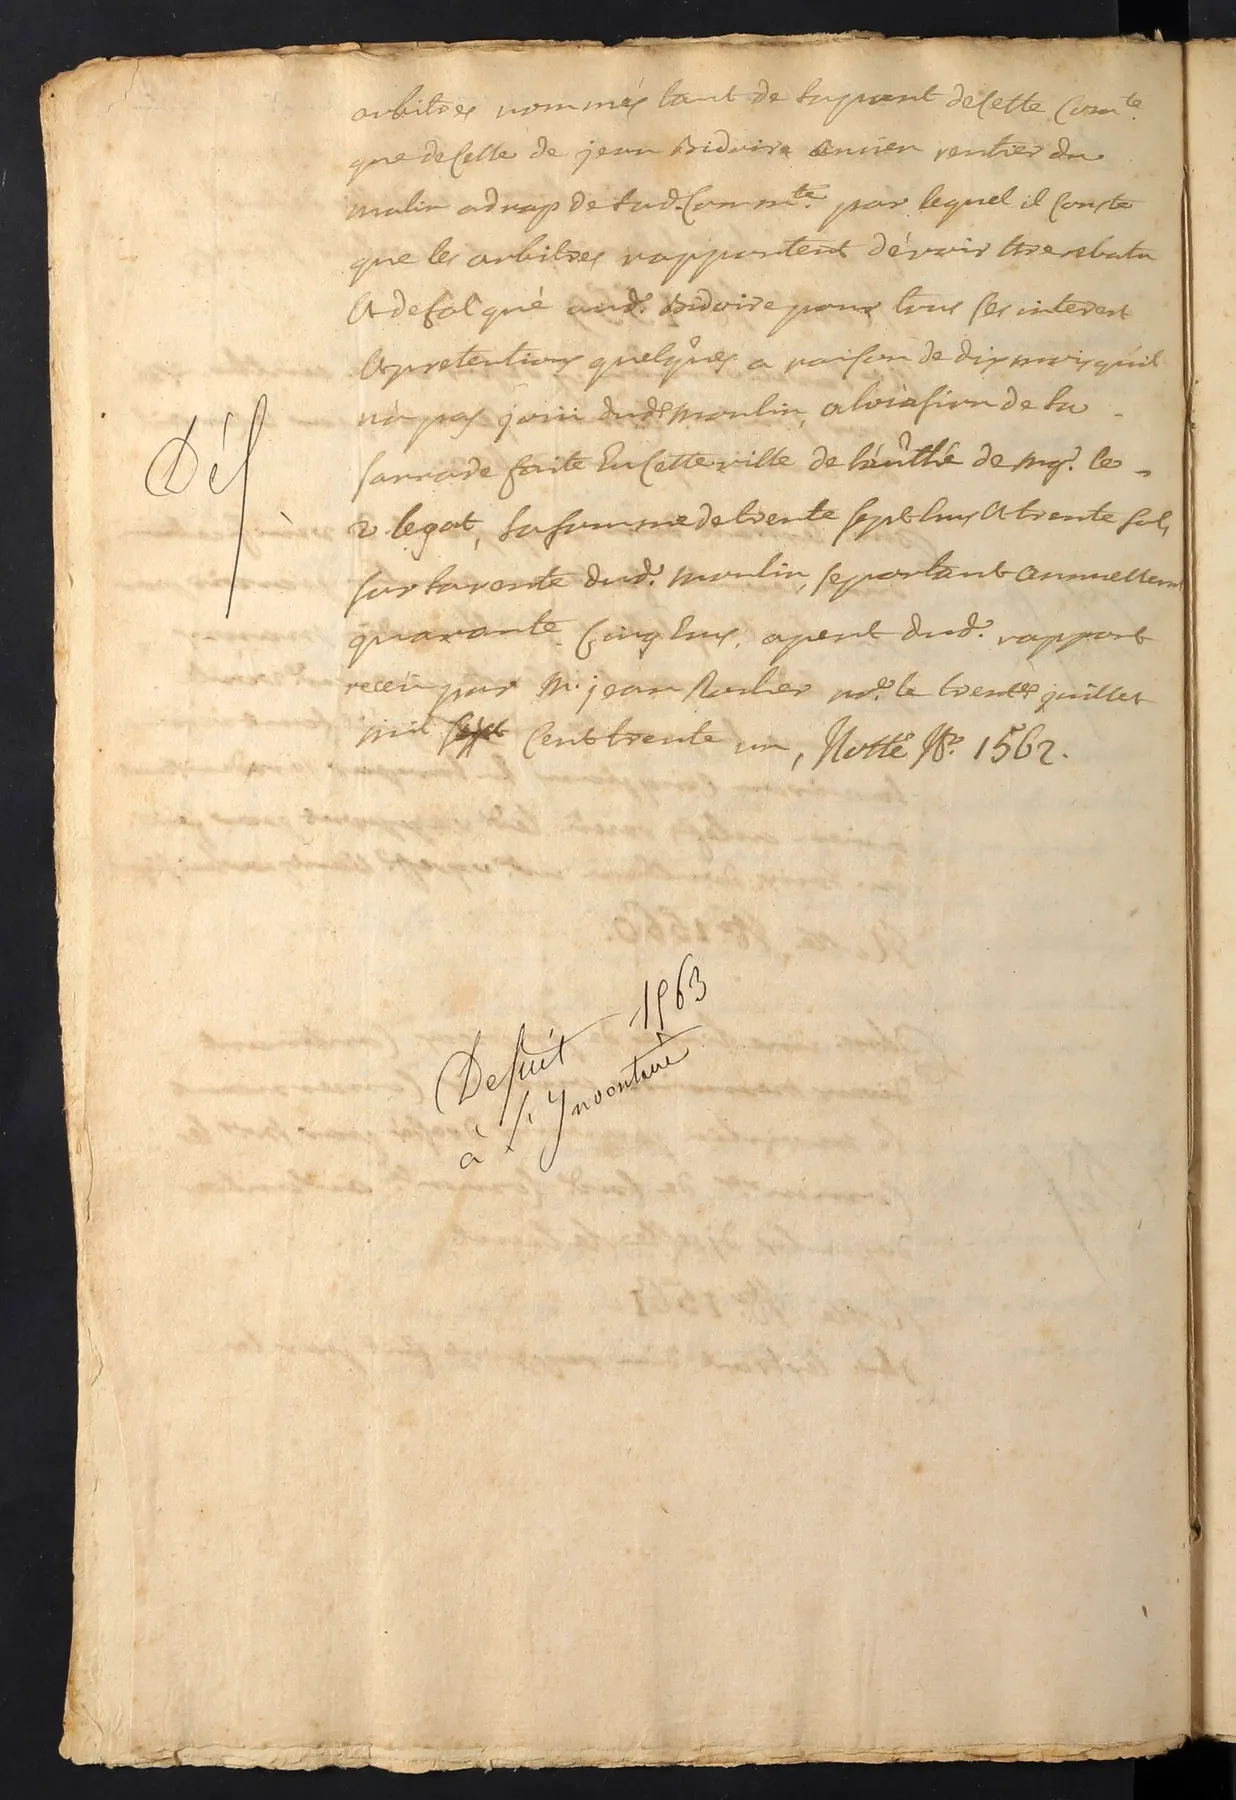 arbitres nommés tant de la part de cette Com.te
que de celle de jean Bidoire ancien rentier du
molin a drap de lad. Comm.te par lequel il conste
que les arbitres rapportent dévoir etre rebatu
et defalqué aud.t Bidoire pour tous ses interest
et pretentions quelq.ues a raison de dix mois qu'il
n'a pas joui dud.t moulin, a loccasion de la
serrade faite en cette ville de l'auth.té de mg.r le
v. legat, la somme de trente sept ecus et trente sols,
sur la rente dud.t moulin, se portant annuellem.t
quarante cinq ecus, apert dud.t rapport
receu par M.e jean Rocher no.re le trente juillet
mil sept cent trente un, Notté N.o 1562.
Déf
Defuit 1563
à l'Inventaire